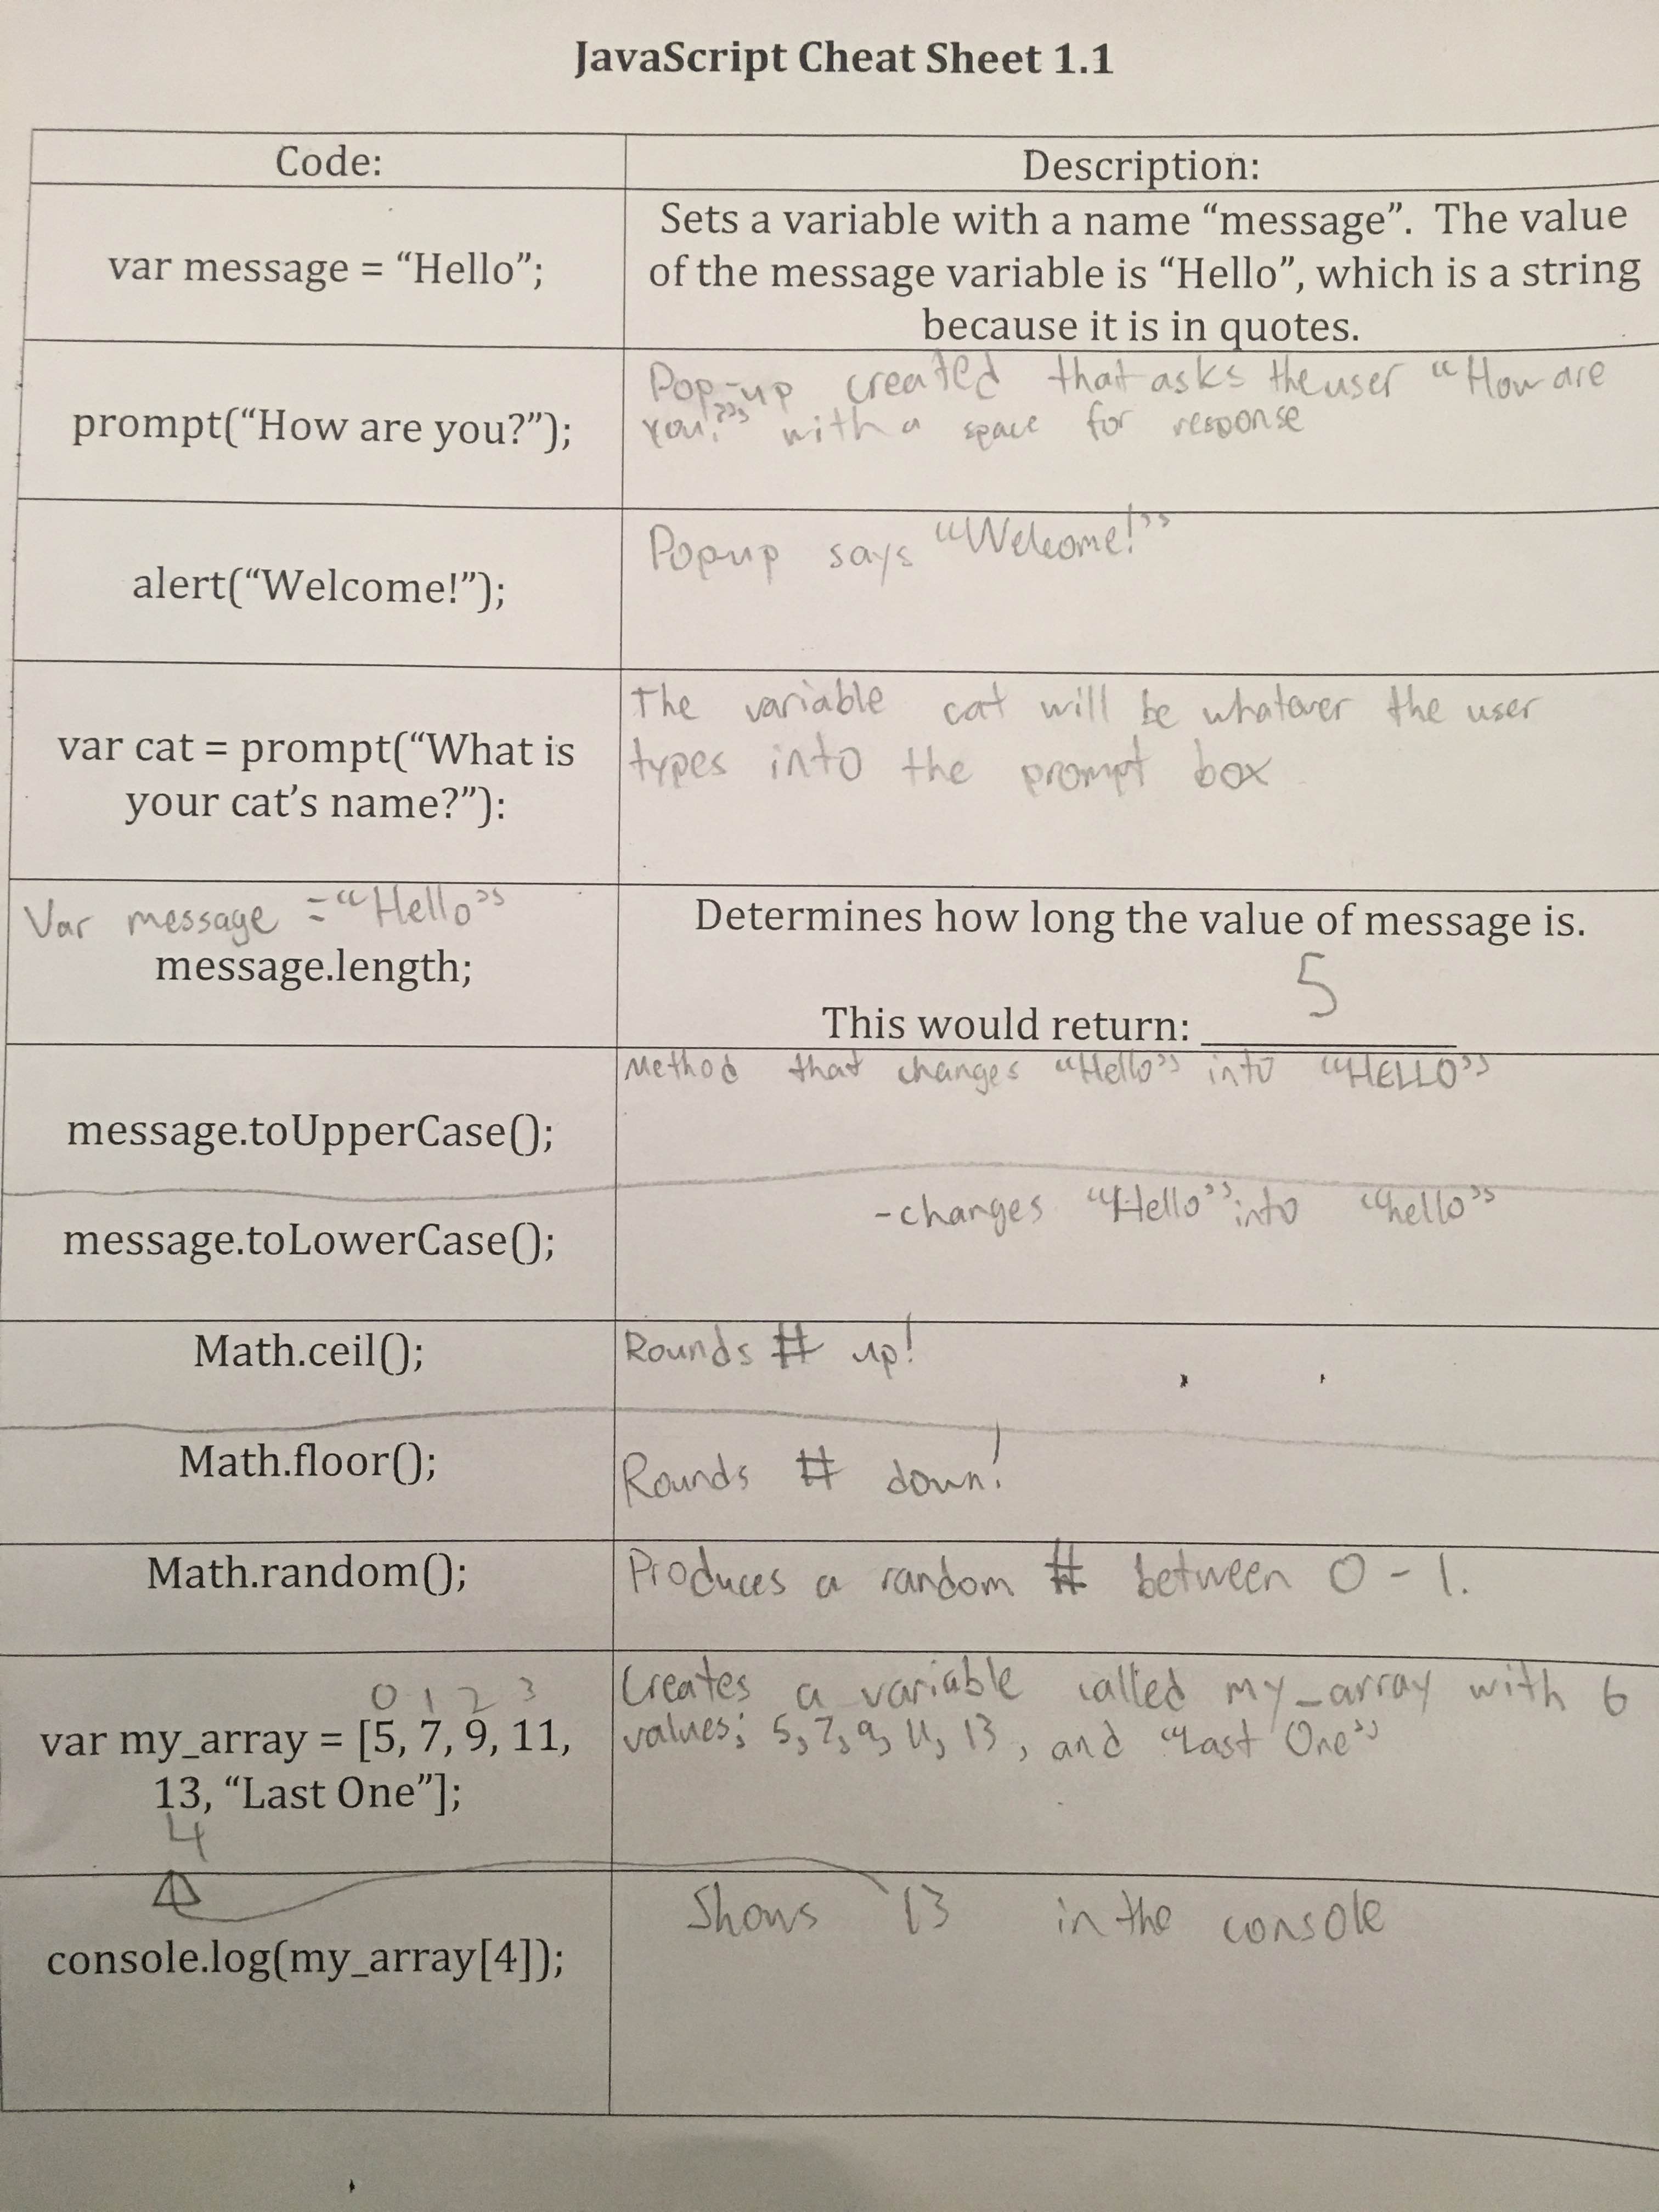 JavaScript Cheat Sheet 1.1
Code:
Description:
var message = “Hello”;
Sets a variable with a name “message”. The value
of the message variable is “Hello”, which is a string
because it is in quotes.
prompt(“How are you?”);
Pop-up created that asks the user “How are
you?” with a space for response
alert(“Welcome!”);
Popup says “Welcome!”
var cat = prompt(“What is
your cat’s name?”):
The variable cat will be whatever the user
types into the prompt box
Var message = “Hello”
message.length;
Determines how long the value of message is.
5
This would return: ____________
message.toUpperCase();
Method that changes “Hello” into “HELLO”
message.toLowerCase();
-changes “Hello” into “hello”
Math.ceil();
Rounds # up!
Math.floor();
Rounds # down!
Math.random();
Produces a random # between 0 - 1.
0 1 2 3
var my_array = [5, 7, 9, 11,
13, “Last One”];
4
Creates a variable called my_array with 6
values; 5, 7, 9, 11, 13, and “Last One”
console.log(my_array[4]);
Shows 13 in the console